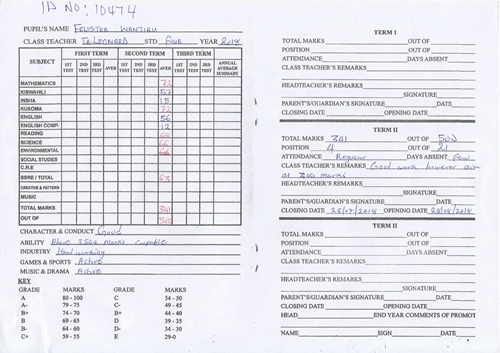 ID NO: 10474
PUPIL'S NAME Felister Wantiru
CLASS TEACHER Tr Leonard STD Four YEAR 2018
SUBJECT FIRST TERM SECOND TERM THIRD TERM
1ST TEST 2ND TEST 3RD TEST AVER 1ST TEST 2ND TEST 3RD TEST AVER 1ST TEST 2ND TEST 3RD TEST ANNUAL AVERAGE SUMMARY
MATHEMATICS 72
KISWAHILI 57
INSHA 15
KUSOMA 72
ENGLISH 56
ENGLISH COMP. 12
READING 68
SCIENCE 66
ENVIRONMENTAL 66
SOCIAL STUDIES
C.R.E
SSRE / TOTAL 63
CREATIVE & PATTERN
MUSIC
TOTAL MARKS 341
OUT OF 500
CHARACTER & CONDUCT Good
ABILITY Above 350 marks capable
INDUSTRY Hard working
GAMES & SPORTS Active
MUSIC & DRAMA Active
KEY
GRADE MARKS GRADE MARKS
A 80 - 100 C 54 - 50
A- 79 - 75 C- 49 - 45
B+ 74 - 70 B+ 44 - 40
B 69 - 65 D 39 - 35
B- 64 - 60 D- 34 - 30
C+ 59 - 55 E 29-0
TERM I
TOTAL MARKS OUT OF
POSITION OUT OF
ATTENDANCE DAYS ABSENT
CLASS TEACHER'S REMARKS
HEADTEACHER'S REMARKS
SIGNATURE
PARENT'S/GUARDIAN'S SIGNATURE DATE
CLOSING DATE OPENING DATE
TERM II
TOTAL MARKS 341 OUT OF 500
POSITION 4 OUT OF 21
ATTENDANCE Regular DAYS ABSENT few
CLASS TEACHER'S REMARKS Good work however aim
at 400 marks
HEADTEACHER'S REMARKS
SIGNATURE
PARENT'S/GUARDIAN'S SIGNATURE DATE
CLOSING DATE 28/07/2018 OPENING DATE 28/08/2018
TERM II
TOTAL MARKS OUT OF
POSITION OUT OF
ATTENDANCE DAYS ABSENT
CLASS TEACHER'S REMARKS
HEADTEACHER'S REMARKS
SIGNATURE
PARENT'S/GUARDIAN'S SIGNATURE DATE
CLOSING DATE OPENING DATE
HEAD END YEAR COMMENTS OF PROMOT
NAME SIGN DATE